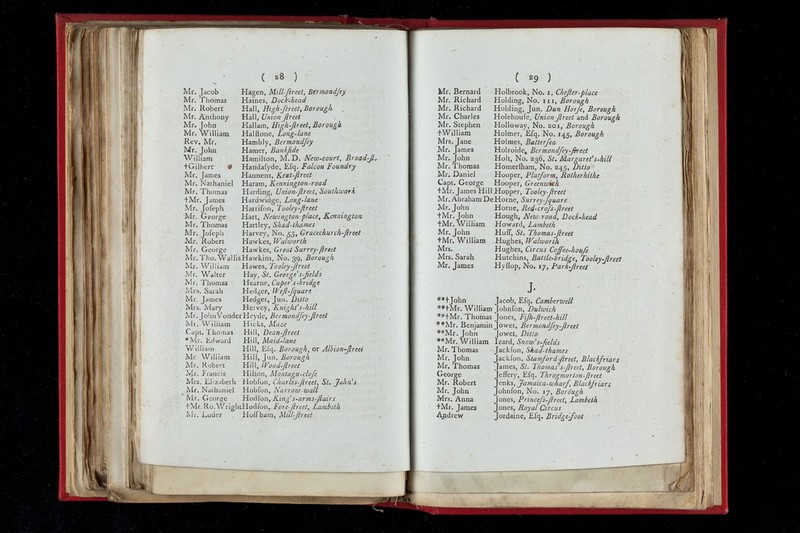 ( 28 )
Mr. Jacob Hagen, Mill-ſtreet, Bermondſey
Mr. Thomas Haines, Dock-head
Mr. Robert Hall, High-ſtreet, Borough
Mr. Anthony Hall, Union ſtreet
Mr. John Hallam, High-ſtreet, Borough
Mr. William Halſtone, Long-lane
Rev. Mr. Hambly, Bermondſey
Mr. John Hamer, Bankſide
William Hamilton, M. D. New-court, Broad-ſt.
†Gilbert Handaſyde, Eſq. Falcon Foundry
Mr. James Hannens, Kent-ſtreet
Mr. Nathaniel Haram, Kennington-road
Mr. Thomas Harding, Union-ſtreet, Southwark
†Mr. James Hardwidge, Long-lane
Mr. Joſeph Harriſon, Tooley-ſtreet
Mr. George Hart, Newington place, Kennington
Mr. Thomas Hartley, Shad-thames
Mr. Joſeph Harvey, No. 55, Gracechurch-ſtreet
Mr. Robert Hawkes, Walworth
Mr. George Hawkes, Great Surrey-ſtreet
Mr. Tho. Wallis Hawkins, No. 39, Borough
Mr. William Hawes, Tooley-ſtreet
Mr. Walter Hay, St. George's-fields
Mr. Thomas Hearne, Cuper's-bridge
Mrs. Sarah Hedger, Weſt-ſquare
Mr. James Hedger, Jun. Ditto
Mrs. Mary Hervey, Knight's-hill
Mr. John Vonder Heyde, Bermondſey-ſtreet
Mr. William Hicks, Maze
Capt. Thomas Hill, Dean-ſtreet
*Mr. Edward Hill, Maid-lane
William Hill, Eſq. Borough, or Albion-ſtreet
Mr William Hill, Jun. Borough
Mr. Robert Hill, Wood-ſtreet
Mr. Francis Hilton, Montagu-cloſe
Mrs. Elizabeth Hobſon, Charles-ſtreet, St. John's
Mr. Nathaniel Hobſon, Narrow-wall
Mr. George Hodſon, King's-arms-ſtairs
†Mr. Ro. Wright Hodſon, Fore-ſtreet, Lambeth
Mr. Luder Hoffham, Mill-ſtreet
( 29 )
Mr. Bernard Holbrook, No. 1, Cheſter-place
Mr. Richard Holding, No. 111, Borough
Mr. Richard Holding, Jun. Dun Horſe, Borough
Mr. Charles Holehouſe, Union-ſtreet and Borough
Mr. Stephen Holloway, No. 201, Borough
†William Holmer, Eſq. No. 145, Borough
Mrs. Jane Holmes, Batterſea
Mr. James Holroide, Bermondſey-ſtreet
Mr. John Holt, No. 236, St. Margaret's-hill
Mr. Thomas Homerſham, No. 245, Ditto
Mr. Daniel Hooper, Platform, Rotherhithe
Capt. George Hooper, Greenwich
†Mr. James Hill Hooper, Tooley-ſtreet
Mr. Abraham De Horne, Surrey-ſquare
Mr. John Horne, Red-croſs-ſtreet
†Mr. John Hough, New-road, Dock-head
†Mr. William Howard, Lambeth
Mr. John Huff, St. Thomas-ſtreet
†Mr. William Hughes, Walworth
Mrs. Hughes, Circus Coffee-houſe
Mrs. Sarah Hutchins, Battle-bridge, Tooley-ſtreet
Mr. James Hyſlop, No. 17, Park-ſtreet
J.
**†John Jacob, Eſq. Camberwell
**†Mr. William Johnſon, Dulwich
**†Mr. Thomas Jones, Fiſh-ſtreet-hill
**Mr. Benjamin Jowet, Bermondſey-ſtreet
**Mr. John Jowet, Ditto
**Mr. William Izard, Snow's-fields
Mr. Thomas Jackſon, Shad-thames
Mr. John Jackſon, Stamford-ſtreet, Blackfriars
Mr. Thomas James, St. Thomas's-ſtreet, Borough
George Jeffery, Eſq. Throgmorton-ſtreet
Mr. Robert Jenks, Jamaica-wharf, Blackfriars
Mr. John Johnſon, No. 17, Borough
Mrs. Anna Jones, Princeſs-ſtreet, Lambeth
†Mr. James Jones, Royal Circus
Andrew Jordaine, Eſq. Bridge-foot